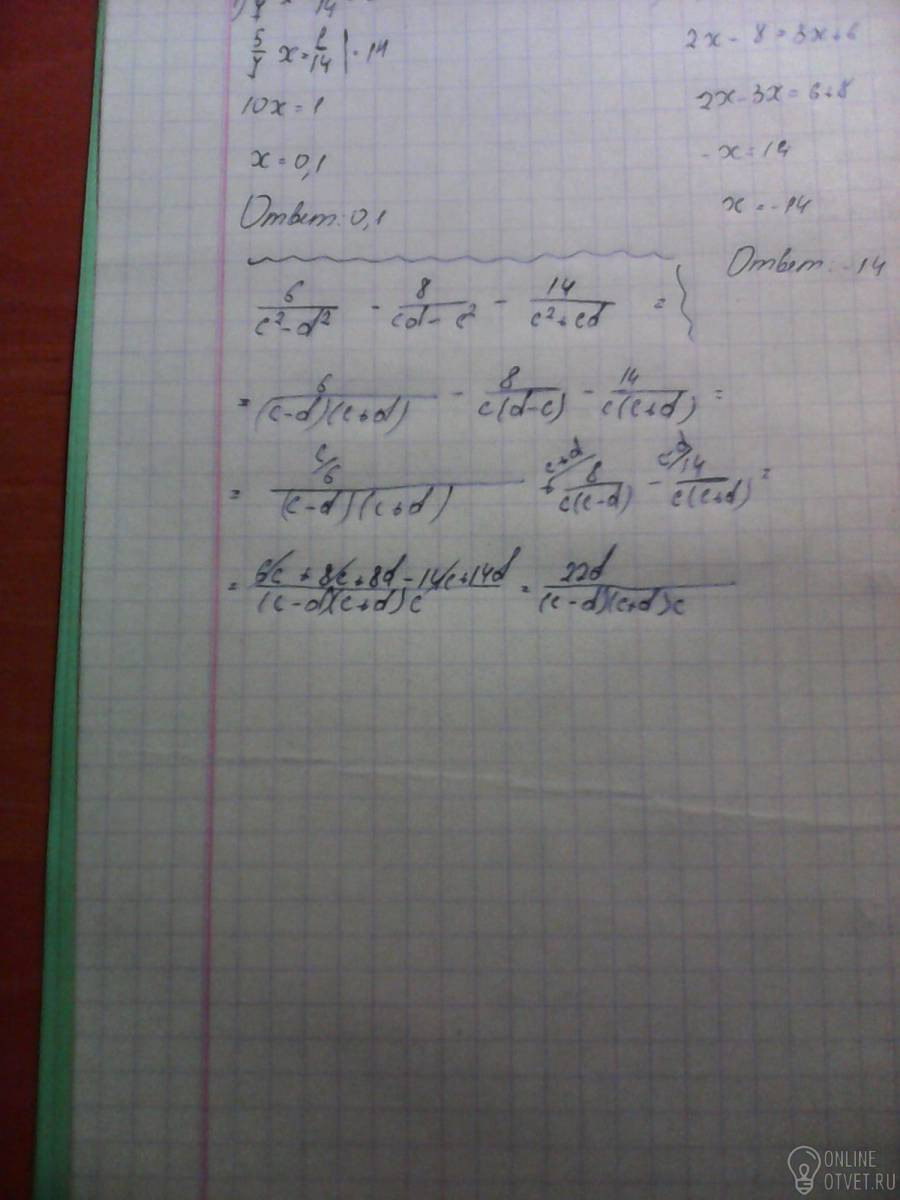 5/7 x = 1/14 | · 14
10x = 1
x = 0,1
Ответ: 0,1
2x - 8 = 3x + 6
2x - 3x = 6 + 8
-x = 14
x = -14
Ответ: -14
6/(c²-d²) - 8/(cd-c²) - 14/(c²+cd) =
= 6/((c-d)(c+d)) - 8/(c(d-c)) - 14/(c(c+d)) =
= c/ 6/((c-d)(c+d)) + c+d/ 8/(c(c-d)) - c-d/ 14/(c(c+d)) =
= (6c + 8c + 8d - 14c + 14d)/((c-d)(c+d)c) = 22d/((c-d)(c+d)c)
ONLINE
OTVET.RU